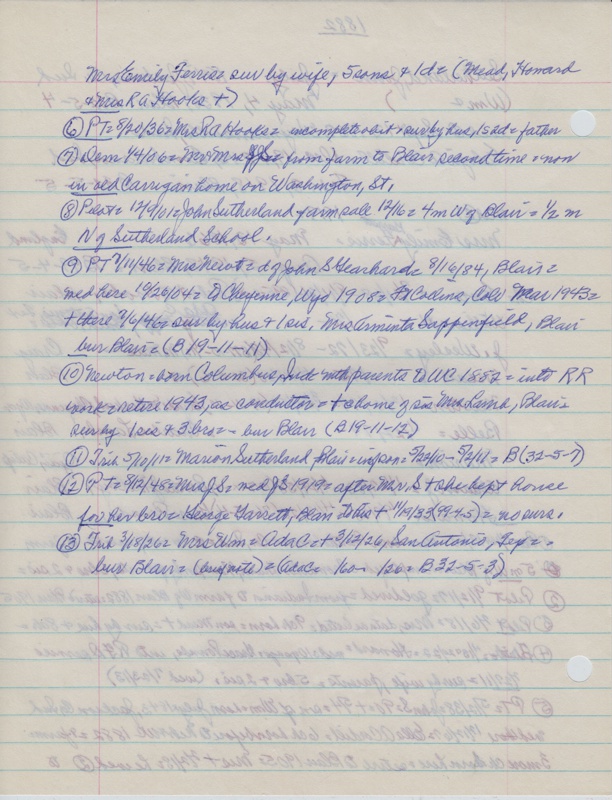 Mrs Emily Ferris = sur by wife, 5 sons, & 1 d = (Mead, Howard
& Mrs R A Hooks +)
⑥ PT = 8/20/36 = Mrs R A Hooks = incomplete obit = sur by hus, 1 s & d = father
⑦ Dem 1/4/06 = Mr Mrs J S = from farm to Blair second time = now
in old Carrigan home on Washington, St.
⑧ Pilot = 12/9/01 = John Sutherland farm sale 12/16 = 4 m W of Blair = 1/2 m
N of Sutherland School.
⑨ PT 7/11/46 = Mrs Newt = d of John S Gearhard = 8/16/84, Blair =
med here 10/26/04 = to Cheyenne, Wyo 1908 = Ft Collins, Colo Mar 1943 =
+ there 7/6/46 = sur by hus & 1 sis, Mrs Arminta Sappinfield, Blair
bur Blair = (B 19-11-11)
⑩ Newton = born Columbus, Ind = with parents to WC 1882 = into RR
work = retire 1943, as conductor = + home of sis Mrs Lamb, Blair =
sur by 1 sis & 3 bro = - bur Blair (B 19-11-12)
⑪ Trib 5/10/11 = Marion Sutherland, Blair = inf son = 5/22/10 - 5/2/11 = B (32-5-7)
⑫ PT = 8/12/48 = Mrs J S = med J S 1919 = after Mr. S + she kept house
for her bro = George Garrett, Blair to his + 1/19/33 (99-4-5) = no surs.
⑬ Trib 3/18/26 = Mrs Wm = Ada C = + 3/12/26, San Antonio, Tex =
bur Blair = (bury note) = (Ada C = 1860 - 1920 = B 32-5-3)